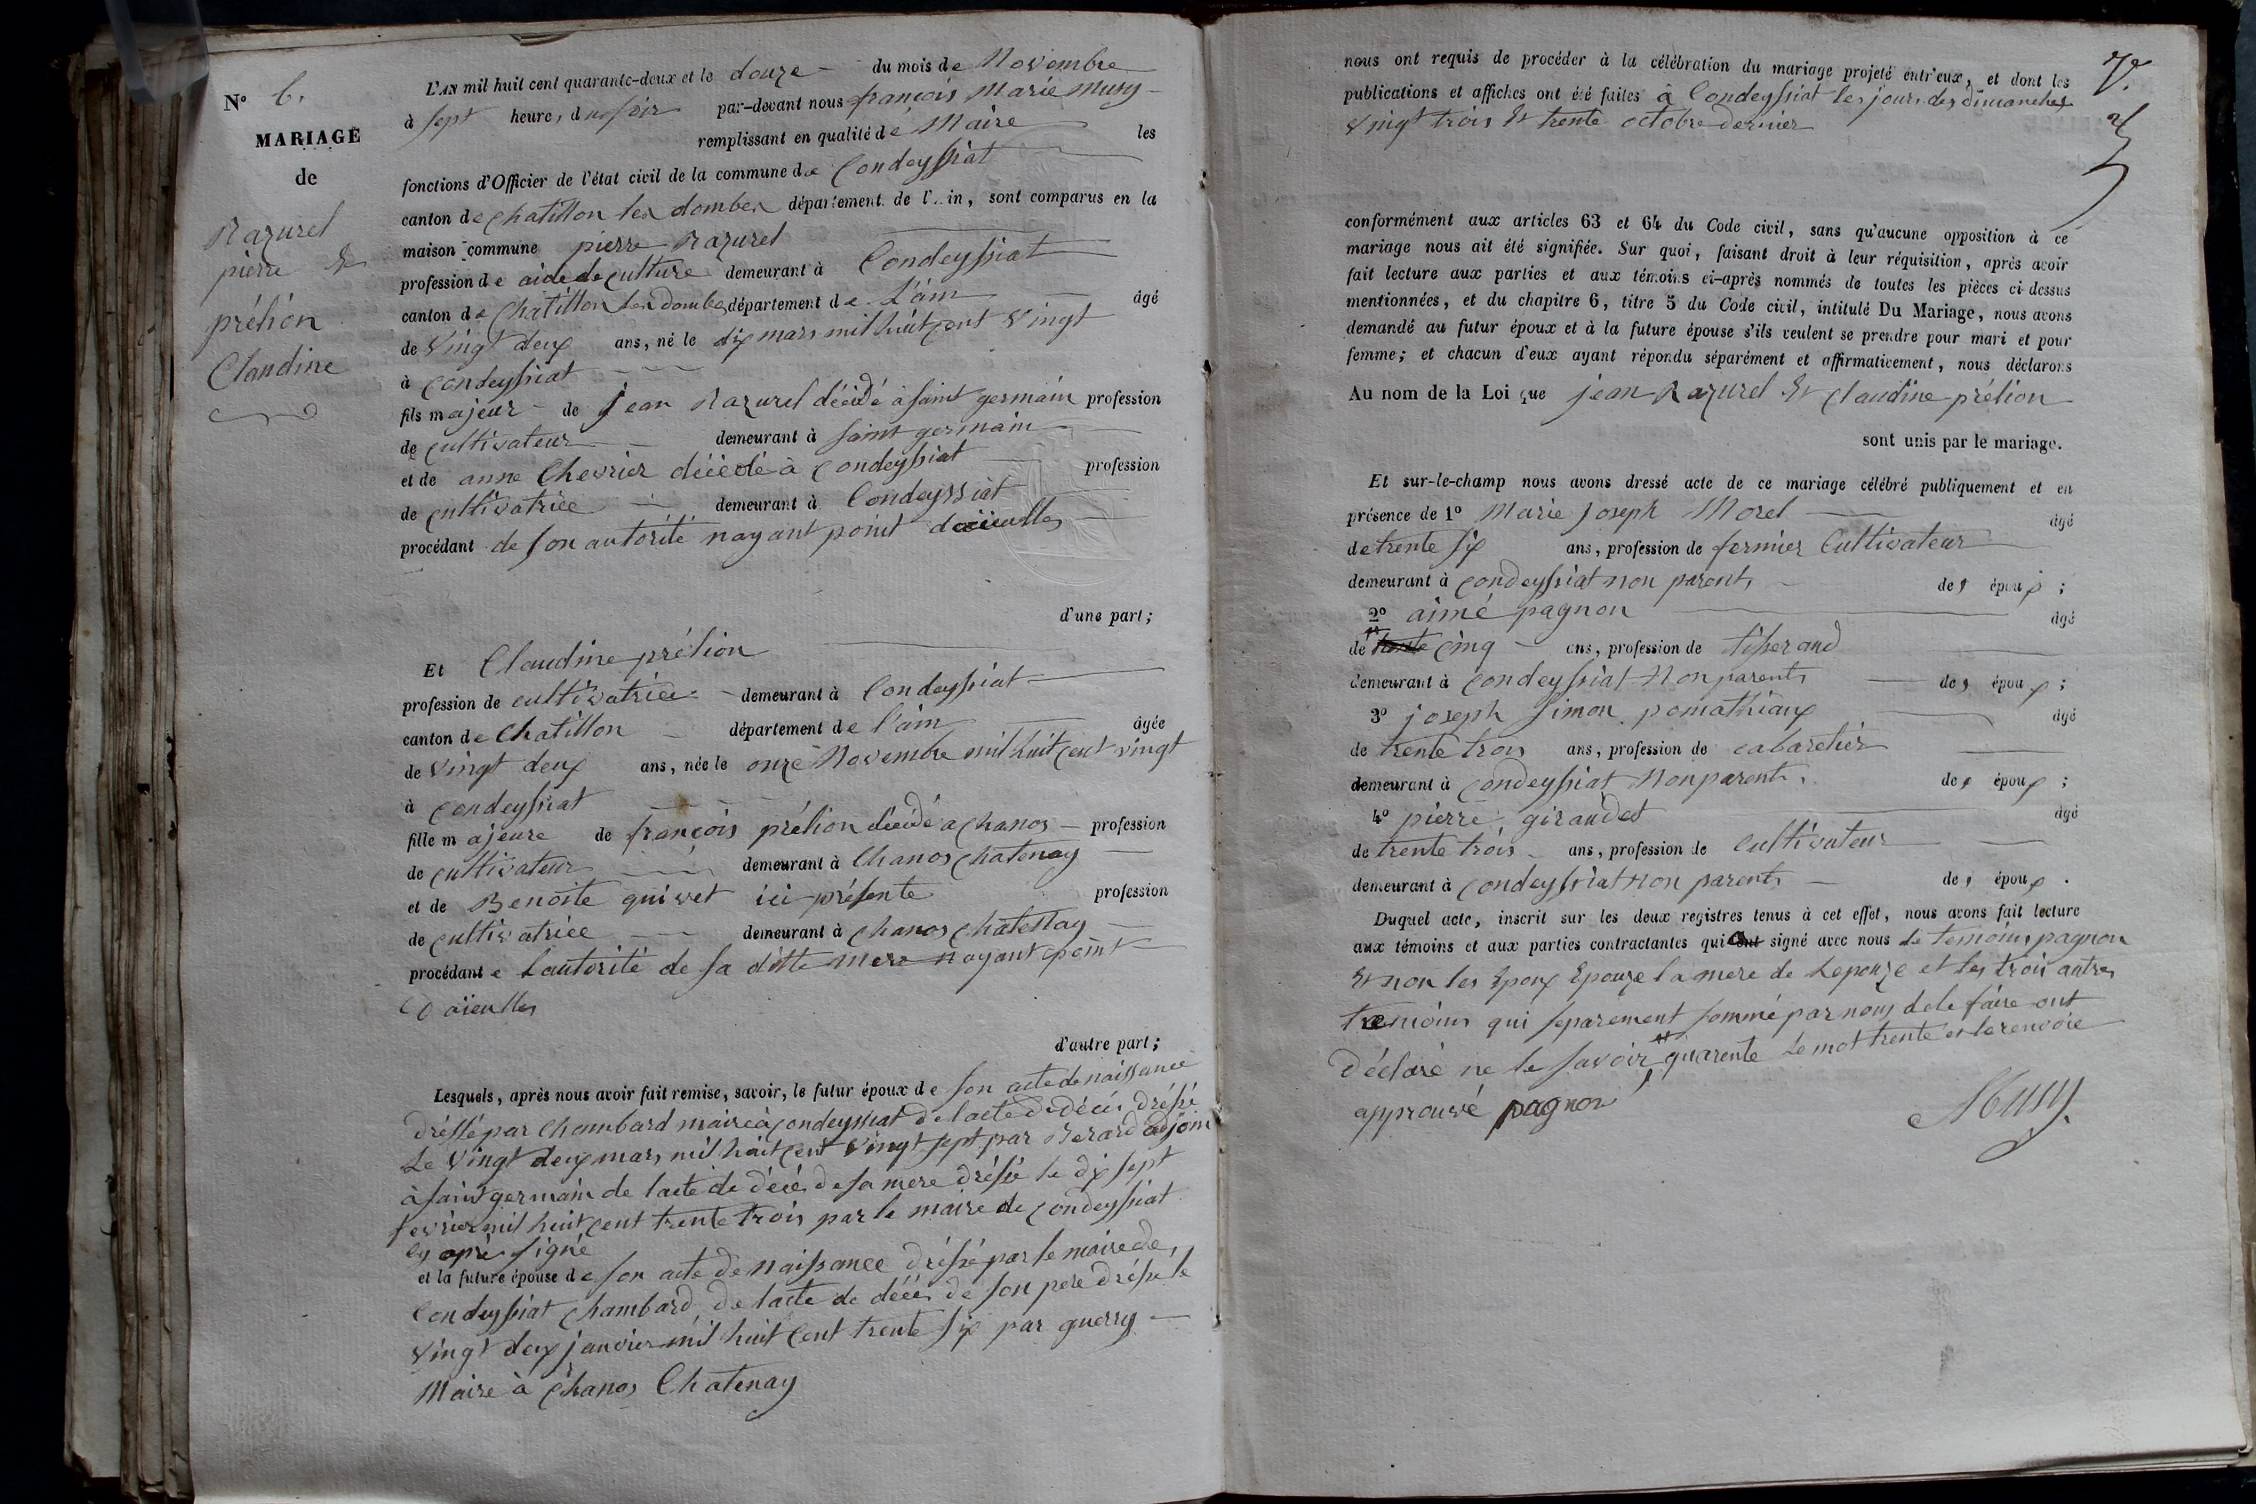 N° 6.
MARIAGE
de
Razurel
pierre &
prélion
Claudine
L'AN mil huit cent quarante-deux et le douze du mois de Novembre
à sept heures du soir par-devant nous françois Marie Musy
remplissant en qualité de Maire les
fonctions d'Officier de l'état civil de la commune de Condeyssiat
canton de chatillon les dombes département de l'Ain, sont comparus en la
maison commune pierre Razurel
profession de aide de culture demeurant à Condeyssiat
canton de chatillon les dombes département de L'ain âgé
de vingt deux ans, né le dix mars mil huit cent vingt
à condeyssiat
fils majeur de jean Razurel décédé à saint germain profession
de cultivateur demeurant à saint germain
et de anne Chevrier décédé à condeyssiat profession
de cultivatrice demeurant à Condeyssiat
procédant de son autorité nayant point daïeulles
d'une part;
Et Claudine prélion
profession de cultivatrice demeurant à Condeyssiat
canton de Chatillon département de l'ain âgée
de vingt deux ans, née le onze Novembre mil huit cent vingt
à condeyssiat
fille majeure de françois prélion décédé a chanos profession
de cultivateur demeurant à Chanos chatenay
et de Benoite quivet ici présente profession
de cultivatrice demeurant à chanos chatenay
procédante lautorité de sa ditte mere nayant point
D'aieulles
d'autre part;
Lesquels, après nous avoir fait remise, savoir, le futur époux de son acte de naissance
dréssé par Chambard maire à condeyssiat de lacte de décés dréssé
Le vingt deux mars mil huit cent vingt sept par Berard adjoin
à saint germain de lacte de décés de sa mere dréssé le dix sept
fevrier mil huit cent trente trois par le maire de condeyssiat
cy apré signé
et la future épouse de son acte de Naissance dréssé par le maire de
Condeyssiat chambard, de lacte de décés de son pere dréssé le
vingt deux janvier mil huit cent trente six par guerry
Maire à chanos Chatenay
nous ont requis de procéder à la célébration du mariage projeté entr'eux, et dont les
publications et affiches ont été faites à Condeyssiat les jours des dimanches
vingt trois et trente octobre dernier
conformément aux articles 63 et 64 du Code civil, sans qu'aucune opposition à ce
mariage nous ait été signifiée. Sur quoi, faisant droit à leur réquisition, après avoir
fait lecture aux parties et aux témoins ci-après nommés de toutes les pièces ci-dessus
mentionnées, et du chapitre 6, titre 5 du Code civil, intitulé Du Mariage, nous avons
demandé au futur époux et à la future épouse s'ils veulent se prendre pour mari et pour
femme; et chacun d'eux ayant répondu séparément et affirmativement, nous déclarons
Au nom de la Loi que jean Razurel et claudine prélion
sont unis par le mariage.
Et sur-le-champ nous avons dressé acte de ce mariage célébré publiquement et en
présence de 1° Marie joseph Morel âgé
de trente six ans, profession de fermier Cultivateur
demeurant à condeyssiat non parents des époux;
2° aimé pagnon âgé
de trente cinq ans, profession de tisserand
demeurant à condeyssiat Non parents des époux;
3° joseph simon pomathiaux âgé
de trente trois ans, profession de cabaretier
demeurant à condeyssiat Non parents des époux;
4° pierre giraudet âgé
de trente trois ans, profession de cultivateur
demeurant à condeyssiat non parents des époux.
Duquel acte, inscrit sur les deux registres tenus à cet effet, nous avons fait lecture
aux témoins et aux parties contractantes qui ont signé avec nous le temoins pagnon
Et non les Epoux Epouze la mere de Lepouze et les trois autres
temoins qui separement sommé par nous de le faire ont
Déclaré ne le savoir, quarente Le mot trente et le renvoie
approuvé pagnon Musy